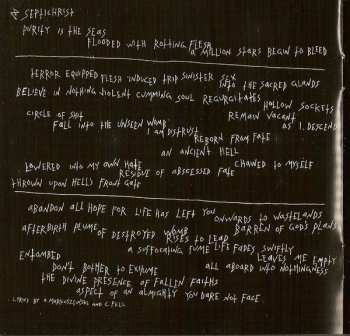 SEPTICHRIST
PURITY IS THE SEAS
FLOODED WITH ROTTING FLESH
A MILLION STARS BEGIN TO BLEED
TERROR EQUIPPED FLESH INDUCED TRIP SINISTER SEX
INTO THE SACRED GLANDS
BELIEVE IN NOTHING VIOLENT CUMMING SOUL REGURGITATES
HOLLOW SOCKETS
CIRCLE OF SHIT
REMAIN VACANT
FALL INTO THE UNSEEN WOMB
AS I DESCEND
I AM DISTRUST
REBORN FROM FATE
AN ANCIENT HELL
LOWERED INTO MY OWN HATE
CHAINED TO MYSELF
RESIDUE OF ABSCESSED FATE
THROWN UPON HELLS FRONT GATE
ABANDON ALL HOPE FOR LIFE HAS LEFT YOU
ONWARDS TO WASTELANDS
AFTERBIRTH PLUME
BARREN OF GODS PLANS
OF DESTROYED WOMB
RISES TO LEAD
A SUFFOCATING FUME LIFE FADES SWIFTLY
ENTOMBED
LEAVES ME EMPTY
DON'T BOTHER TO EXHUME
ALL ABOARD INTO NOTHINGNESS
THE DIVINE PRESENCE OF FALLEN FAITHS
ASPECT OF AN ALMIGHTY YOU DARE NOT FACE
LYRICS BY
AND C.